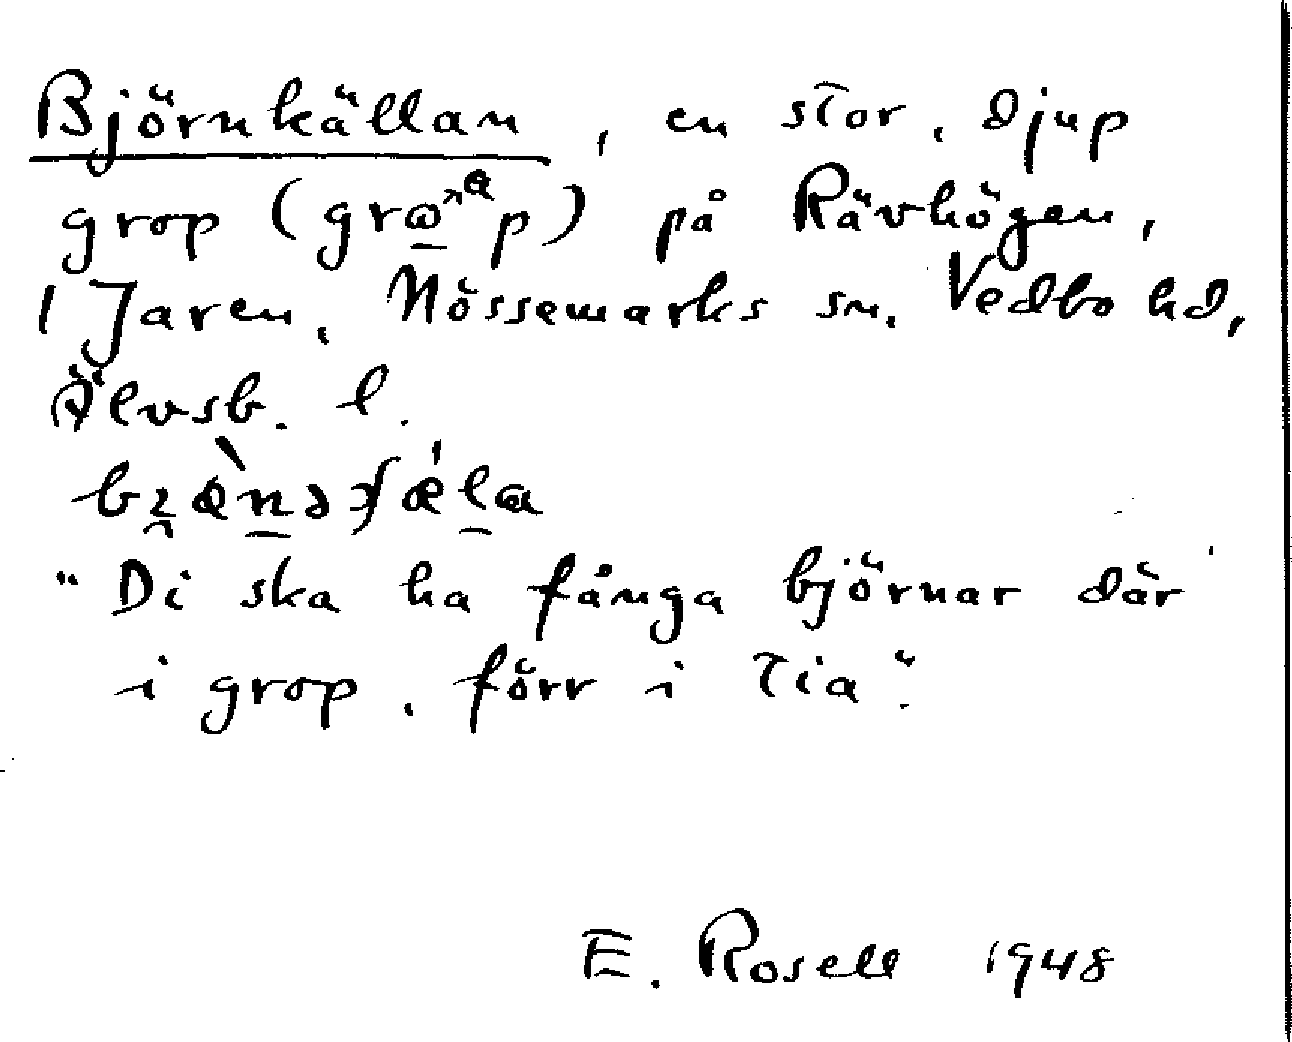 Björnkällan, en stor, djup
grop ( ) på Rävhögen,
1 Jaren, Nössemarks sn, Vedbo hd,
Älvsb. l.
"Di ska ha fånga björnar där
i grop, förr i tia".
E. Rosell 1948